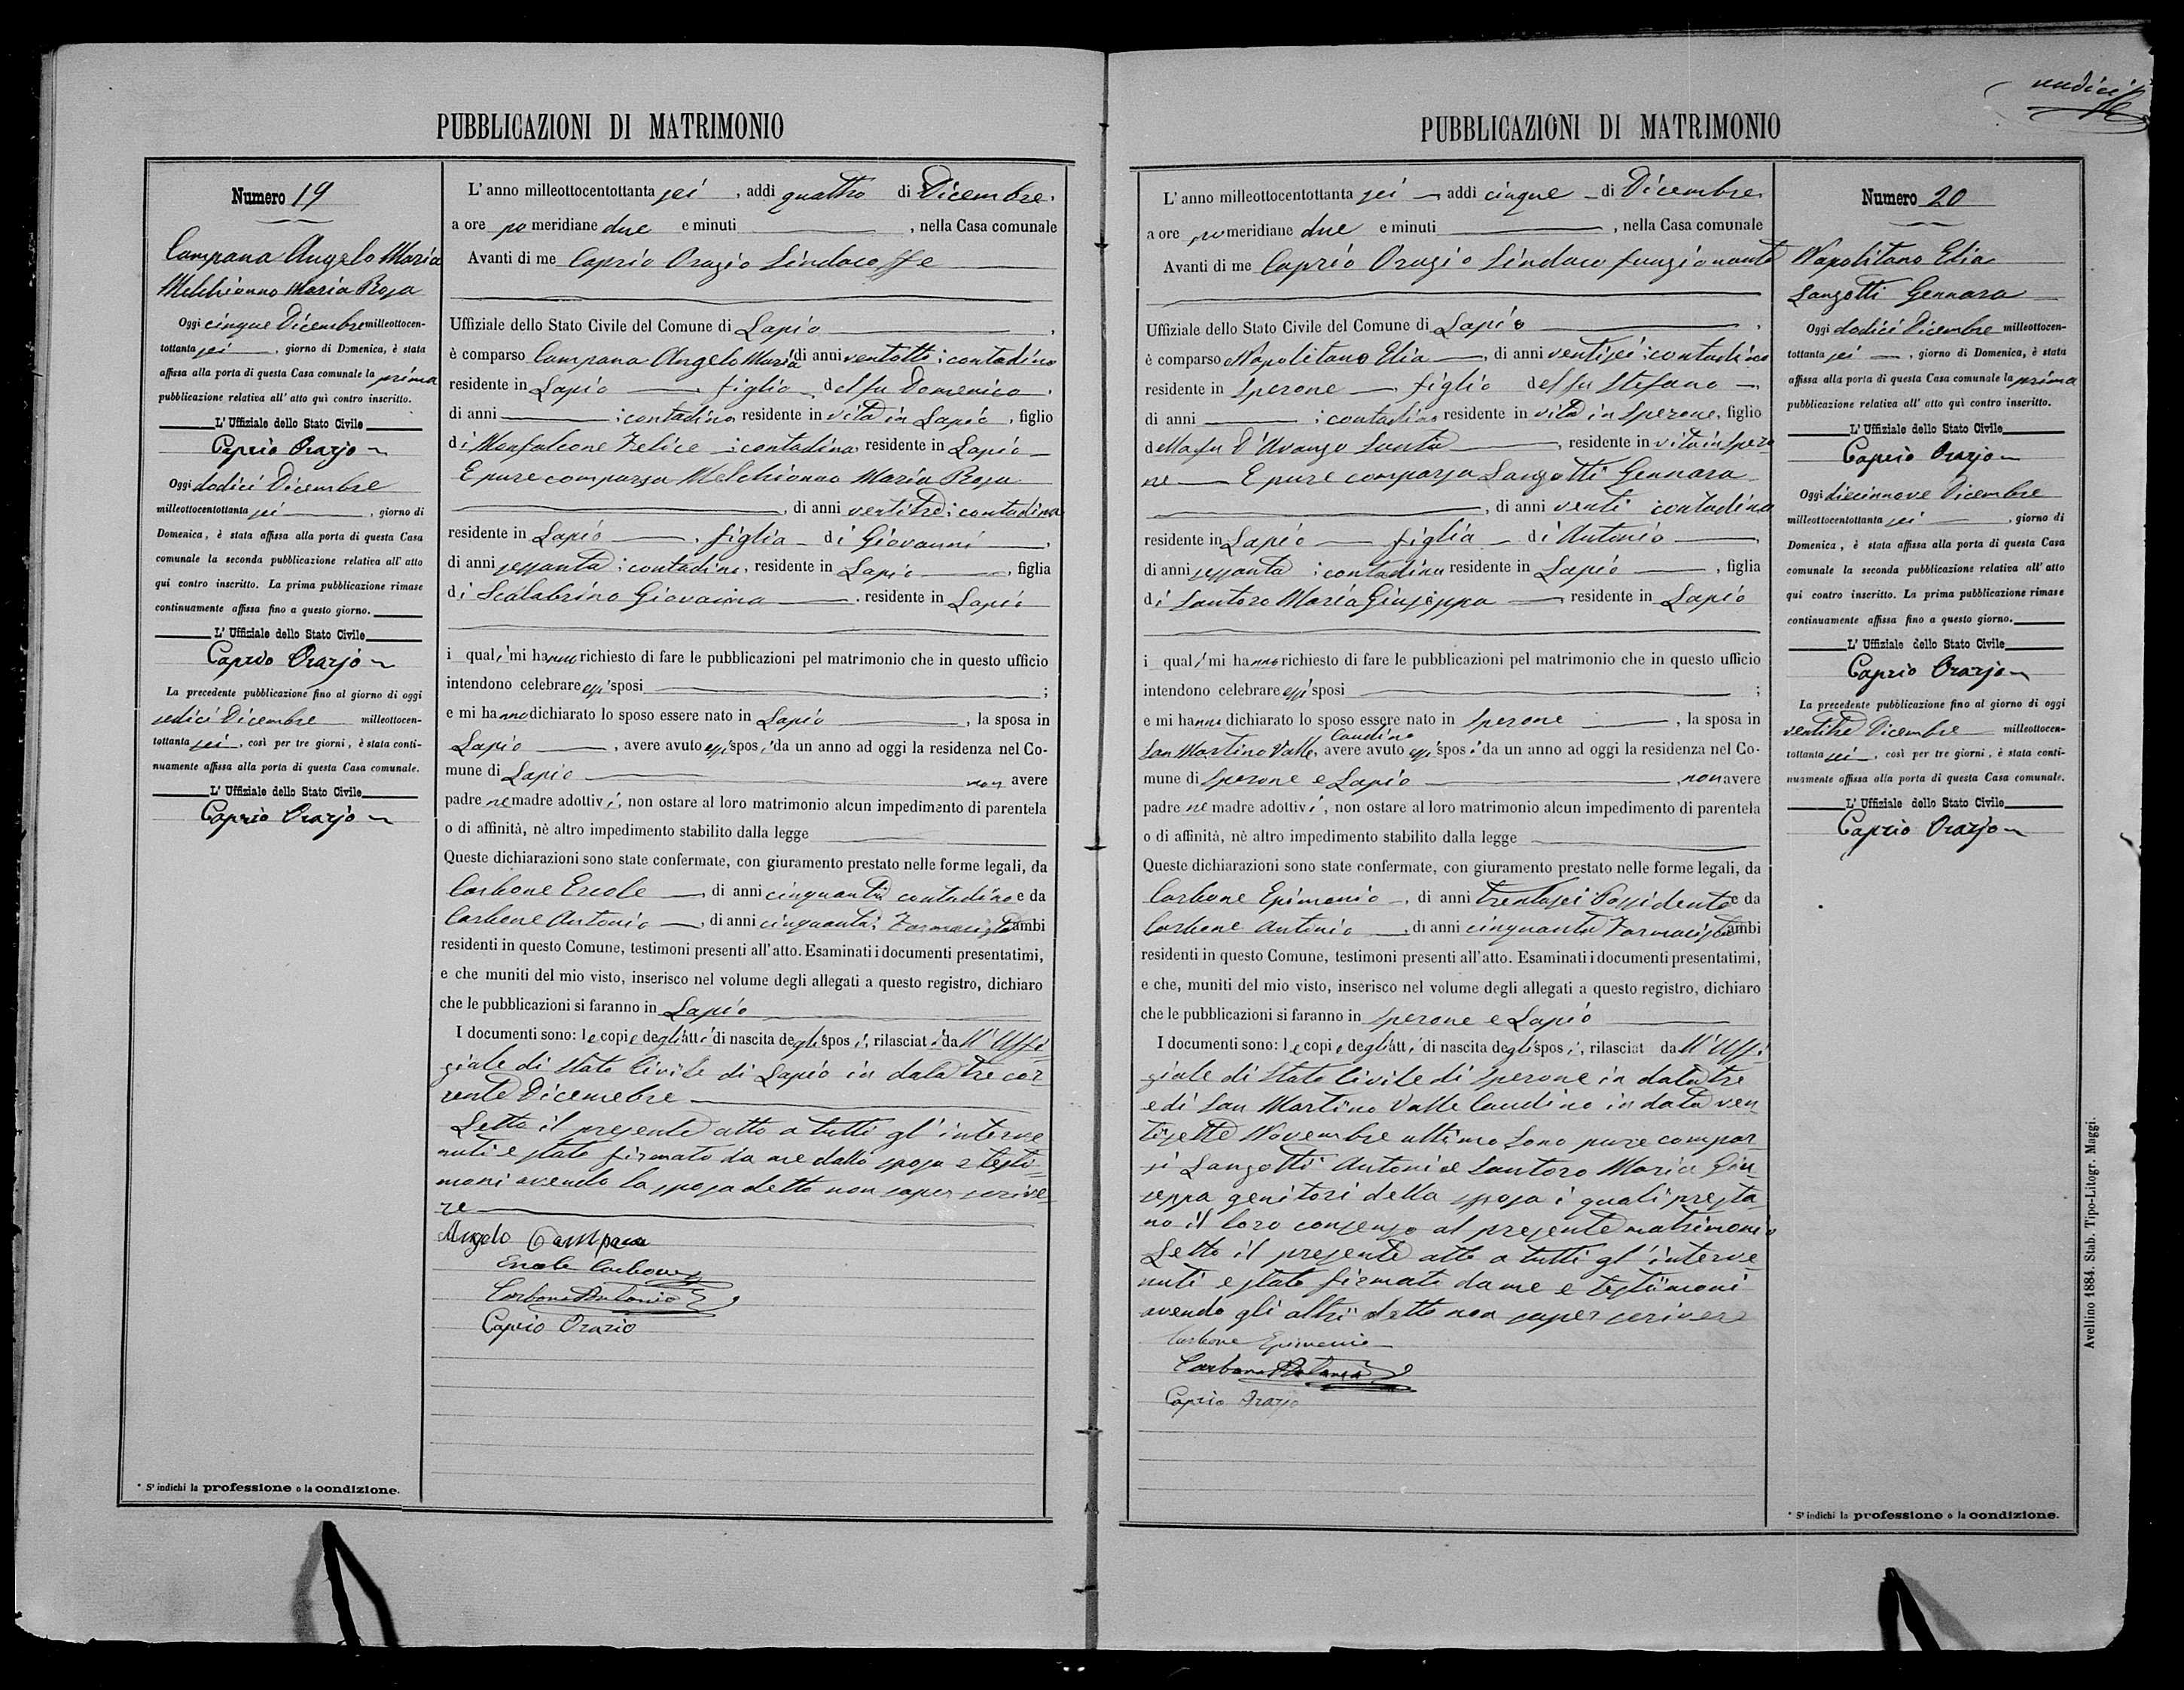 PUBBLICAZIONI DI MATRIMONIO
Numero 19
Campana Angelo Maria
Melchionno Maria Rosa
Oggi cinque Dicembre milleottocen-
tottanta sei, giorno di Domenica, è stata
affissa alla porta di questa Casa comunale la prima
pubblicazione relativa all' atto quì contro inscritto.
L' Uffiziale dello Stato Civile
Caprio Orazio
Oggi dodici Dicembre
milleottocentottanta sei, giorno di
Domenica, è stata affissa alla porta di questa Casa
comunale la seconda pubblicazione relativa all' atto
qui contro inscritto. La prima pubblicazione rimase
continuamente affissa fino a questo giorno.
L' Uffiziale dello Stato Civile
Caprio Orazio
La precedente pubblicazione fino al giorno di oggi
sedici Dicembre milleottocen-
tottanta sei, così per tre giorni, è stata conti-
nuamente affissa alla porta di questa Casa comunale.
L' Uffiziale dello Stato Civile
Caprio Orazio
* S' indichi la professione o la condizione.
L' anno milleottocentottanta sei, addì quattro di Dicembre,
a ore po meridiane due e minuti , nella Casa comunale
Avanti di me Caprio Orazio Sindaco ffe
Uffiziale dello Stato Civile del Comune di Lapio,
è comparso Campana Angelo Maria, di anni ventotto; contadino
residente in Lapio, figlio del fu Domenico,
di anni ; contadino residente in vita in Lapio, figlio
di Monfalcone Felice contadina, residente in Lapio
E pure comparsa Melchionno Maria Rosa
, di anni ventitre; contadina
residente in Lapio, figlia di Giovanni,
di anni sessanta; contadino, residente in Lapio, figlia
di Scalabrino Giovanna, residente in Lapio
i quali mi hanno richiesto di fare le pubblicazioni pel matrimonio che in questo ufficio
intendono celebrare essi sposi ;
e mi hanno dichiarato lo sposo essere nato in Lapio, la sposa in
Lapio, avere avuto essi sposi da un anno ad oggi la residenza nel Co-
mune di Lapio non avere
padre ne madre adottivi, non ostare al loro matrimonio alcun impedimento di parentela
o di affinità, nè altro impedimento stabilito dalla legge
Queste dichiarazioni sono state confermate, con giuramento prestato nelle forme legali, da
Carbone Ercole, di anni cinquanta contadino e da
Carbone Antonio, di anni cinquanta; Farmacista ambi
residenti in questo Comune, testimoni presenti all' atto. Esaminati i documenti presentatimi,
e che muniti del mio visto, inserisco nel volume degli allegati a questo registro, dichiaro
che le pubblicazioni si faranno in Lapio
I documenti sono: le copie degli atti di nascita degli sposi, rilasciati dall' Uffi
ziale di Stato Civile di Lapio in data tre cor
rente Dicemebre
Letto il presente atto a tutti gl' interve
nuti e stato firmato da me dallo sposo e testi-
moni avendo la sposa detto non saper scrive
re
Angelo Campana
Ercole Carbone
Carbone Antonio
Caprio Orazio
undici
PUBBLICAZIONI DI MATRIMONIO
L' anno milleottocentottanta sei addì cinque di Dicembre
a ore po meridiane due e minuti , nella Casa comunale
Avanti di me Caprio Orazio Sindaco funzionante
Uffiziale dello Stato Civile del Comune di Lapio,
è comparso Napolitano Elia, di anni ventisei; contadino
residente in Sperone, figlio del fu Stefano,
di anni ; contadino residente in vita in Sperone, figlio
della fu D'Avanzo Santa, residente in vita in Spero
ne E pure comparsa Sanzotti Gennara
, di anni venti contadina
residente in Lapio figlia di Antonio,
di anni sessanta; contadino residente in Lapio, figlia
di Santoro Maria Giuseppa residente in Lapio
i quali mi hanno richiesto di fare le pubblicazioni pel matrimonio che in questo ufficio
intendono celebrare essi sposi ;
e mi hanno dichiarato lo sposo essere nato in Sperone, la sposa in
San Martino Valle Caudino, avere avuto essi sposi da un anno ad oggi la residenza nel Co-
mune di Sperone e Lapio, non avere
padre ne madre adottivi, non ostare al loro matrimonio alcun impedimento di parentela
o di affinità, nè altro impedimento stabilito dalla legge
Queste dichiarazioni sono state confermate, con giuramento prestato nelle forme legali, da
Carbone Epimenio, di anni trentasei Possidente e da
Carbone Antonio, di anni cinquanta Farmacista ambi
residenti in questo Comune, testimoni presenti all' atto. Esaminati i documenti presentatimi,
e che, muniti del mio visto, inserisco nel volume degli allegati a questo registro, dichiaro
che le pubblicazioni si faranno in Sperone e Lapio
I documenti sono: le copie degli atti di nascita degli sposi, rilasciat dall' Uffi
ziale di Stato Civile di Sperone in data tre
e di San Martino Valle Caudino in data ven
tisette Novembre ultimo Sono pure compar
si Sanzotti Antonio e Santoro Maria Giu
seppa genitori della sposa i quali presta
no il loro consenso al presente matrimonio
Letto il presente atto a tutti gl' interve
nuti e stato firmato da me e testimoni
avendo gli altri detto non saper scrivere
Carbone Epimenio
Carbone Antonio
Caprio Orazio
Numero 20
Napolitano Elia
Sanzotti Gennara
Oggi dodici Dicembre milleottocen-
tottanta sei, giorno di Domenica, è stata
affissa alla porta di questa Casa comunale la prima
pubblicazione relativa all' atto quì contro inscritto.
L' Uffiziale dello Stato Civile
Caprio Orazio
Oggi diecinnove Dicembre
milleottocentottanta sei, giorno di
Domenica, è stata affissa alla porta di questa Casa
comunale la seconda pubblicazione relativa all' atto
qui contro inscritto. La prima pubblicazione rimase
continuamente affissa fino a questo giorno.
L' Uffiziale dello Stato Civile
Caprio Orazio
La precedente pubblicazione fino al giorno di oggi
ventitre Dicembre milleottocen-
tottanta sei, così per tre giorni, è stata conti-
nuamente affissa alla porta di questa Casa comunale.
L' Uffiziale dello Stato Civile
Caprio Orazio
* S' indichi la professione o la condizione.
Avellino 1884. Stab. Tipo-Litogr. Maggi.